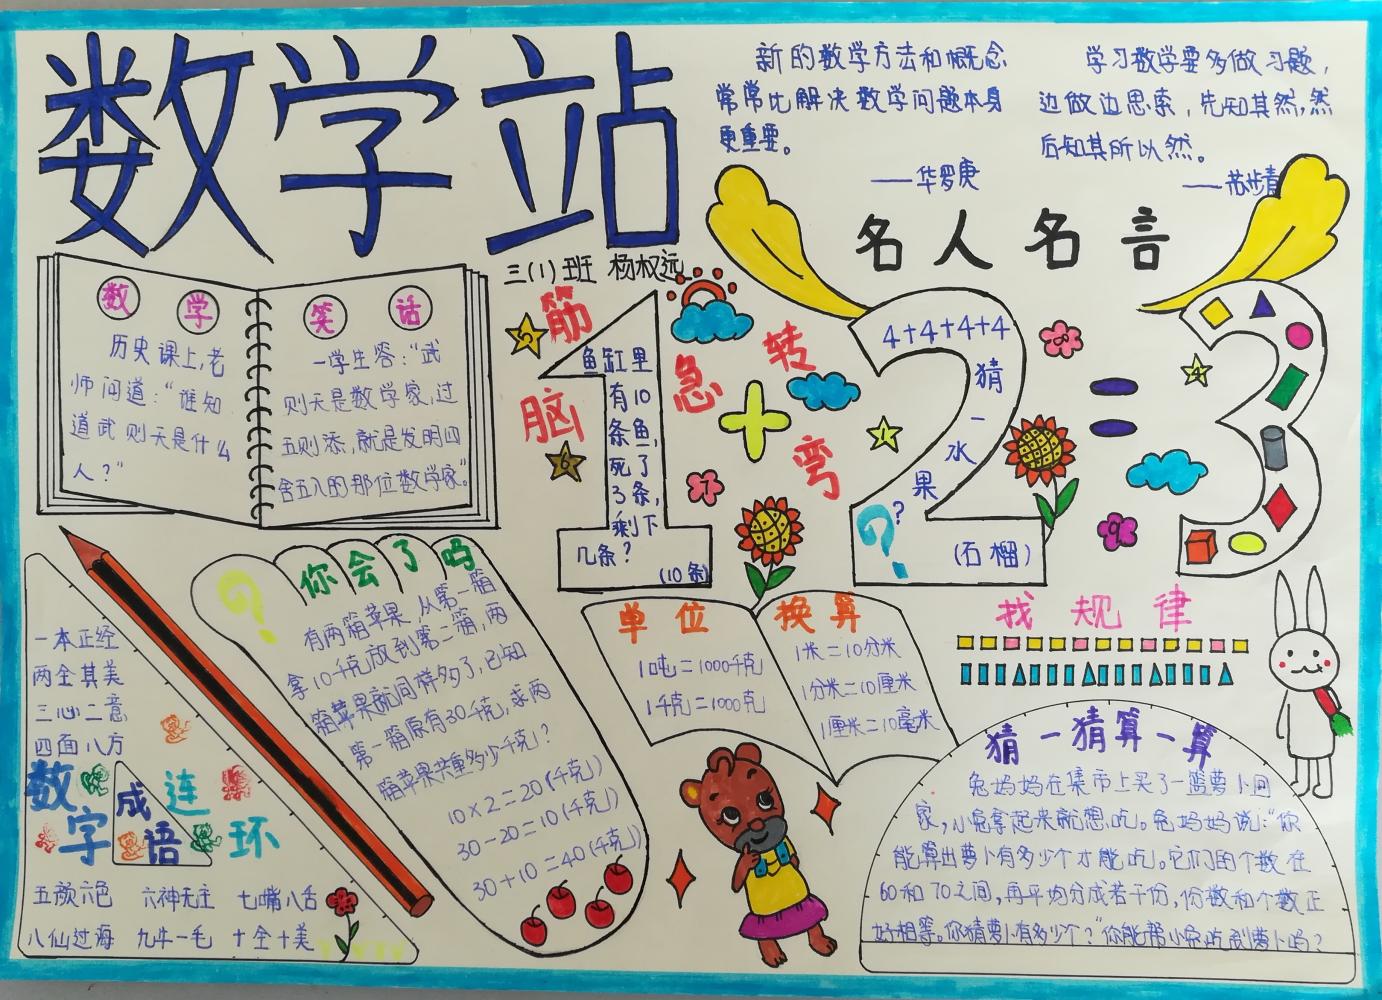 数学站
三(1)班 杨权远
新的数学方法和概念
常常比解决数学问题本身
更重要。
——华罗庚
学习数学要多做习题，
边做边思索，先知其然，然
后知其所以然。
——苏步青
名人名言
数学
历史课上，老
师问道：“谁知
道武则天是什么
人？”
笑话
一学生答：“武
则天是数学家，过
五则添，就是发明四
舍五入的那位数学家”。
脑筋急转弯
5
6
鱼缸里
有10
条鱼，
死了
3条，
剩下
几条？
(10条)
+
4+4+4+4
猜
一
水
果
??
(石榴)
=
3
1
4
8
7
9
你会了吗
?
有两箱苹果，从第一箱
拿10千克放到第二箱，两
箱苹果就同样多了，已知
第一箱原有30千克，求两
箱苹果共重多少千克？
10×2=20(千克)
30-20=10(千克)
30+10=40(千克)
一本正经
两全其美
三心二意
四面八方
数字
成语
连环
五颜六色 六神无主 七嘴八舌
八仙过海 九牛一毛 十全十美
单位
1吨=1000千克
1千克=1000克
换算
1米=10分米
1分米=10厘米
1厘米=10毫米
找规律
猜一猜算一算
兔妈妈在集市上买了一篮萝卜回
家，小兔拿起来就想吃。兔妈妈说：“你
能算出萝卜有多少个才能吃。它们的个数在
60和70之间，再平均分成若干份，份数和个数正
好相等。你猜萝卜有多少个？”你能帮小兔吃到萝卜吗？